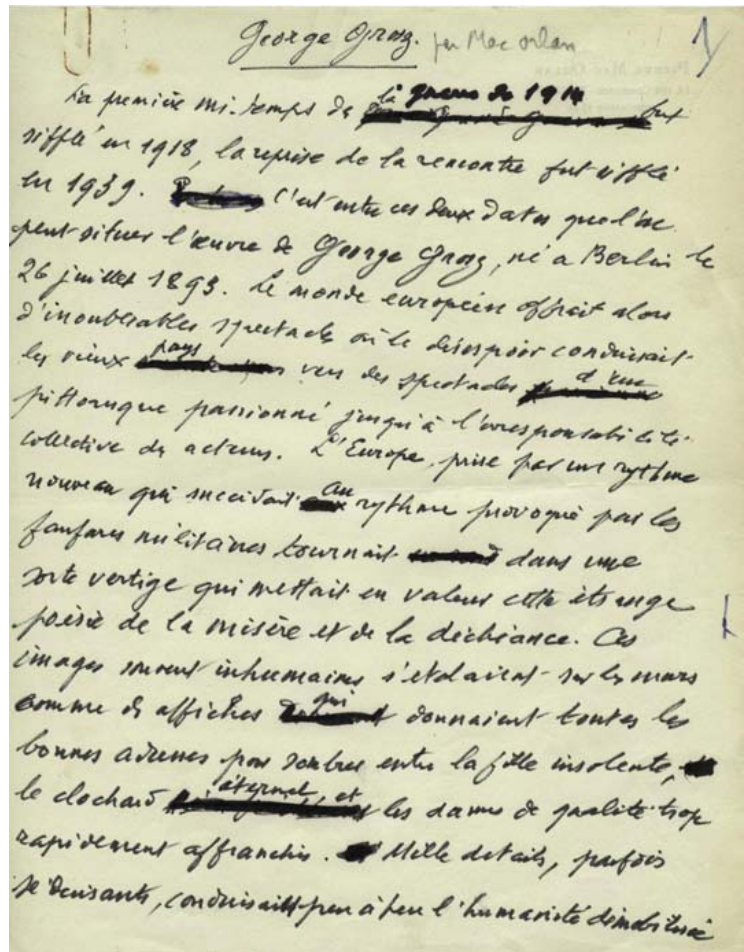 George Grosz. par Mac Orlan
1/
La première mi-temps de la guerre de 1914 fut
sifflé en 1918, la reprise de la rencontre fut sifflé
en 1939. C'est entre ces deux dates que l'on
peut situer l'œuvre de George Grosz, né a Berlin le
26 juillet 1893. Le monde européen offrait alors
d'inoubliables spectacles où le désespoir conduisait
les vieux pays vers des spectacles d'un
pittoresque passionné jusqu'à l'irresponsabilité
collective des acteurs. L'Europe, prise par un rythme
nouveau qui succédait au rythme provoqué par les
fanfares militaires tournait dans une
sorte vertige qui mettait en valeur cette étrange
poésie de la misère et de la déchéance. Ces
images souvent inhumaines s'étalaient sur les murs
comme des affiches qui donnaient toutes les
bonnes adresses pour sombrer entre la fille insolente,
le clochard éternel, et les dames de qualité trop
rapidement affranchies. Mille détails, parfois
séduisants, conduisait peu à peu l'humanité démobilisée